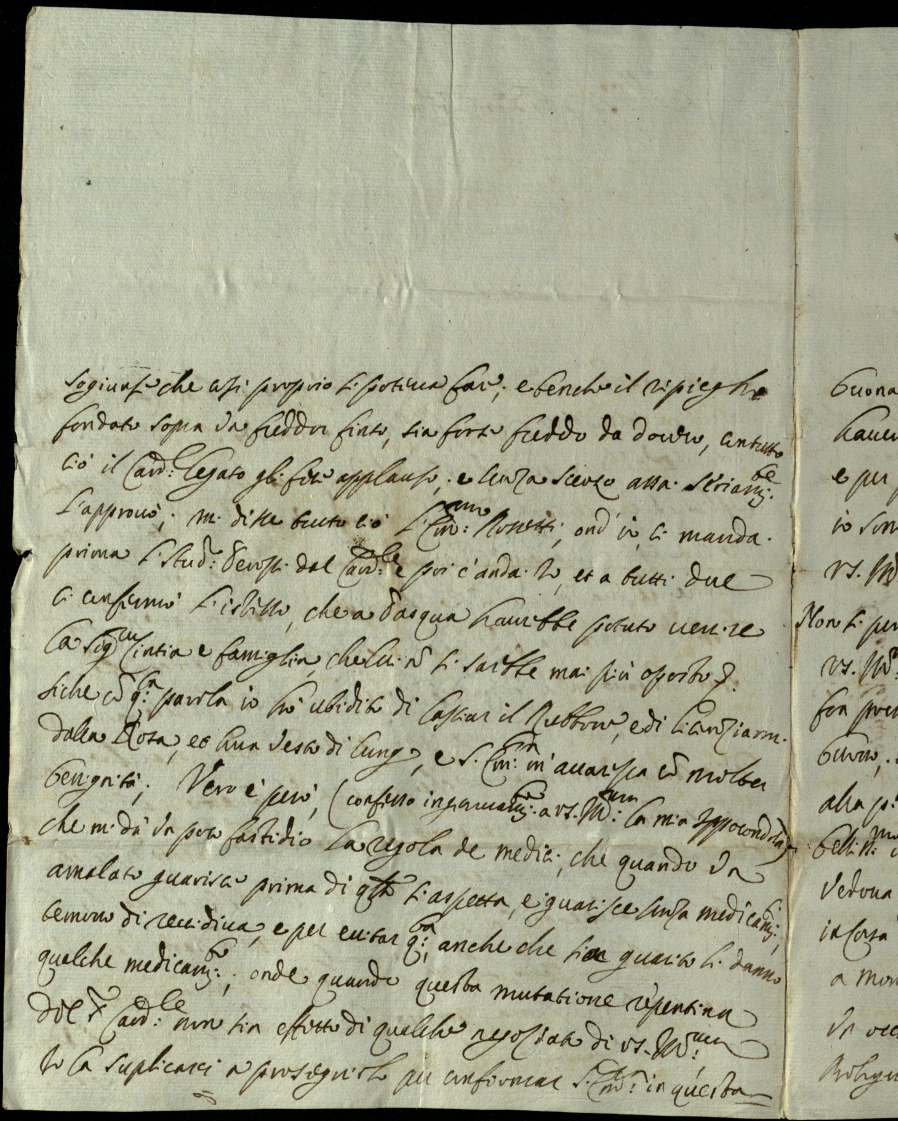 sogiunse che così proprio si poteva far; e benche il ripiegho
fondato sopra un freddor finto, sia forse freddo da dovero, con tutto
ciò il Card.le Legato gli fece applauso, e senza scerzo alla
l'approvò; mi disse tutto ciò l'Em.mo Rossetti, ond' io ci manda.
prima dal Card.le e poi c'anda io, et a tutti due
ci confirmò l'istesso, che a Pasqua havrebbe potuto venire
la Sig.ra Cintia e famiglia, che lui nõ si sarebbe mai più oposto
siche cõ q.ta parola io hò ubidito di lasciar il Rubbone, e di licenziarmi
dalla Rosa, et hun vesta di lung, e S. Em.za m'accarisca cõ molta
benignità; Vero è però, (confesso ingenuam.te a vs. Ill.ma la mia Ippocondria)
che mi dà un poco fastidio la regola de medici, che quando un
amalato guarisce prima di q.to si aspetta, e guarisce senza medicam.ti,
temono di recidiva, e per evitar q.ta, anche che sia guarito li danno
qualche medicam.to; onde quando questa mutatione repentina
del S.r Card.le non sia effetto di qualche negoziato di vs. Ill.ma
io la suplicarei a proseguirlo per confirmar S. Em.za in questa
buona
haver
e per
io son
vs. Ill
Non si per
vs. Ill.ma
far
alla
Vedova
in corso
a mon
Un
Bologn